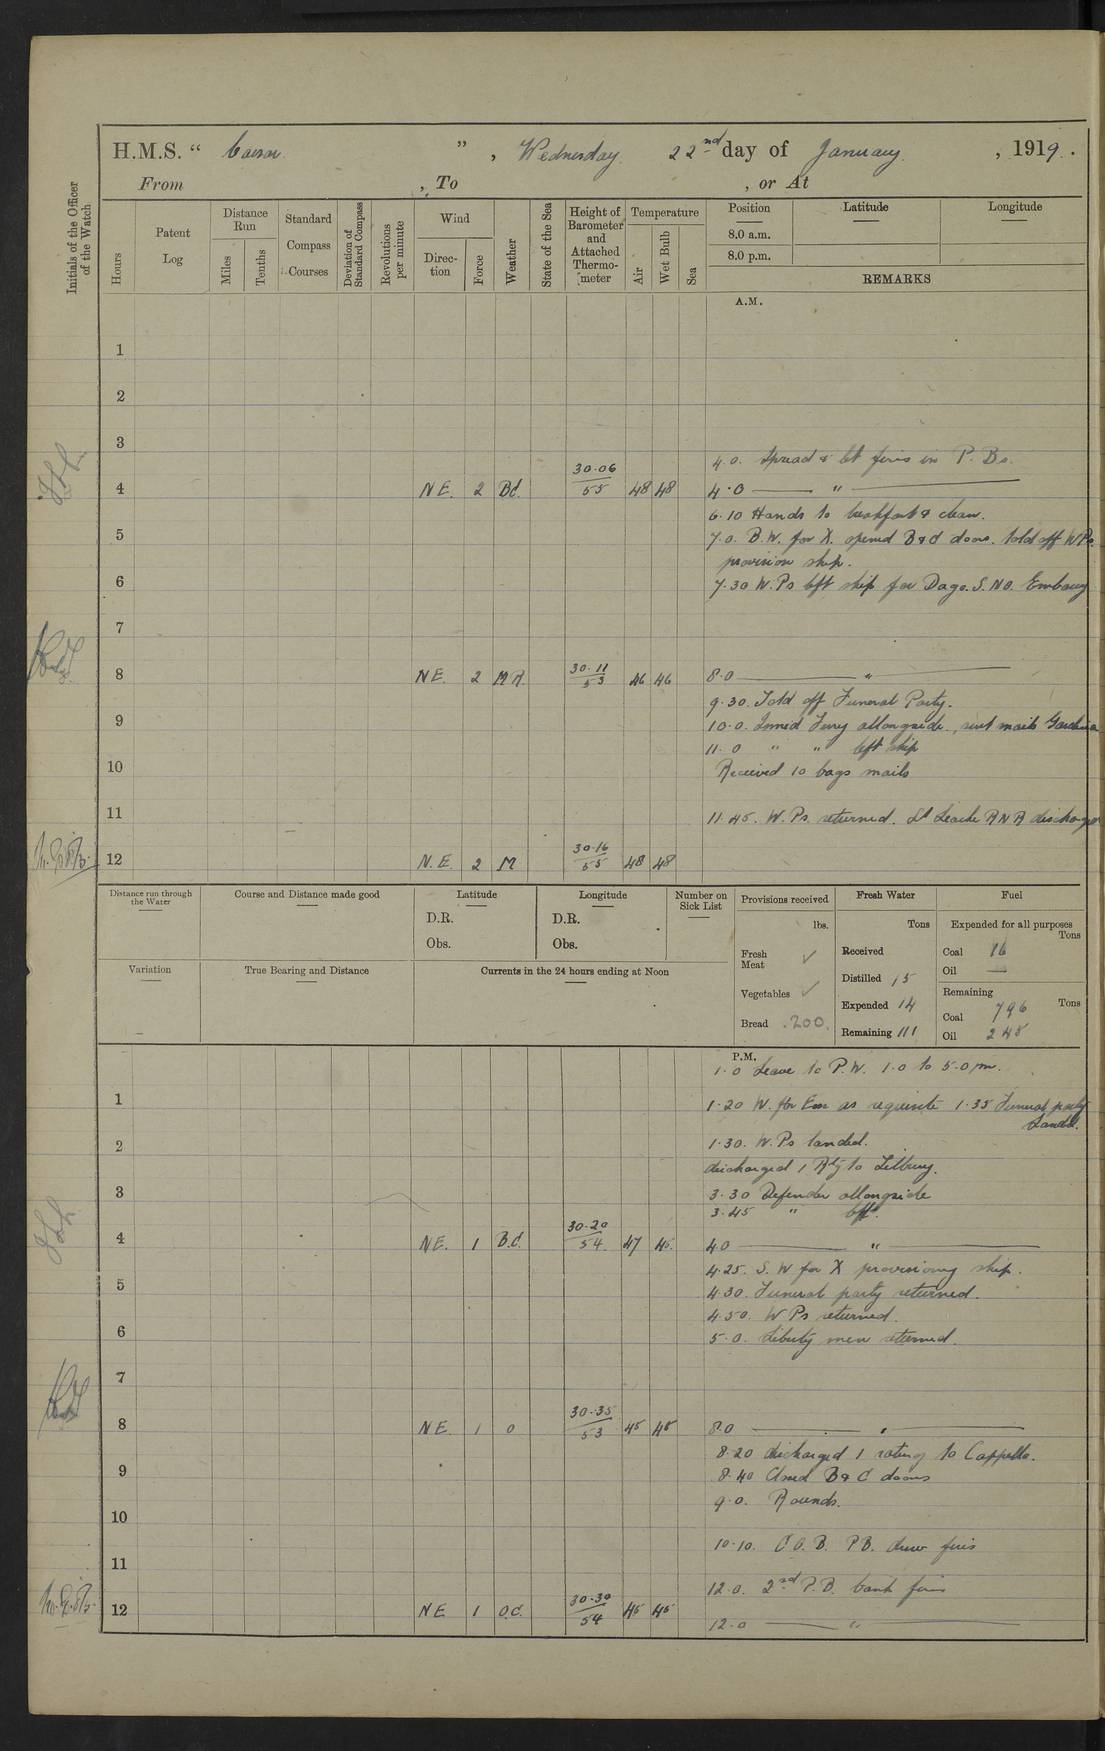 H.M.S. “ Caesar ” , Wednesday 22nd day of January , 1919 .
From , To , or At
Initials of the Officer of the Watch
Hours
Patent Log
Distance Run
Miles
Tenths
Standard Compass Courses
Deviation of Standard Compass
Revolutions per minute
Wind
Direction
Force
Weather
State of the Sea
Height of Barometer and Attached Thermometer
Temperature
Air
Wet Bulb
Sea
Position
Latitude
Longitude
8.0 a.m.
8.0 p.m.
REMARKS
A.M.
1
2
3
4.0. Spread & lit fires in P. Bs.
4 NE. 2 BC. 30.06 / 55 48 48 4.0 "
6.10 Hands to breakfast & clean.
5 7.0. B.W. for X. opened B & C doors. told off WPs
provision ship.
6 7.30 W.Ps left ship for Dago. S.NO. Embassy
7
8 NE. 2 MR. 30.11 / 53 46 46 8.0 "
9.30. Told off Funeral Party.
9 10.0. Inmed Ferry allongside, sent mails Gardenia
11.0 " " left ship
10 Received 10 bags mails
11 11.45. W.Ps. returned. Lt Leache RNR discharged
12 N.E. 2 M 30.16 / 55 48 48
Distance run through the Water
Course and Distance made good
Latitude
D.R.
Obs.
Longitude
D.R.
Obs.
Number on Sick List
Provisions received
lbs.
Fresh Meat ✓
Vegetables ✓
Bread 200.
Fresh Water
Tons
Received
Distilled 15
Expended 14
Remaining 111
Fuel
Expended for all purposes
Tons
Coal 16
Oil —
Remaining
Tons
Coal 796
Oil 248
Variation
True Bearing and Distance
Currents in the 24 hours ending at Noon
P.M.
1.0 Leave to P.W. 1.0 to 5.0 pm.
1 1.20 W. for Em as requisite 1.35 Funeral party
landed.
2 1.30. W.Ps landed.
discharged 1 Rtg to Tilbury.
3 3.30 Defender allongside
3.45 " left.
4 NE. 1 B.C. 30.20 / 54 47 45. 4.0 "
4.25. S.W for X provisioning ship.
5 4.30. Funeral party returned.
4.50. W Ps returned.
6 5.0. Liberty men returned.
7
8 NE. 1 O 30.35 / 53 45 45 8.0 "
8.20 discharged 1 rating to Cappella.
9 8.40 Closed B & C doors
9.0. Rounds.
10
10.10. C O.B. P.B. drew fires
11
12.0. 2nd P.B. bank fires
12 NE 1 O.C. 30.30 / 54 45 45 12.0 "